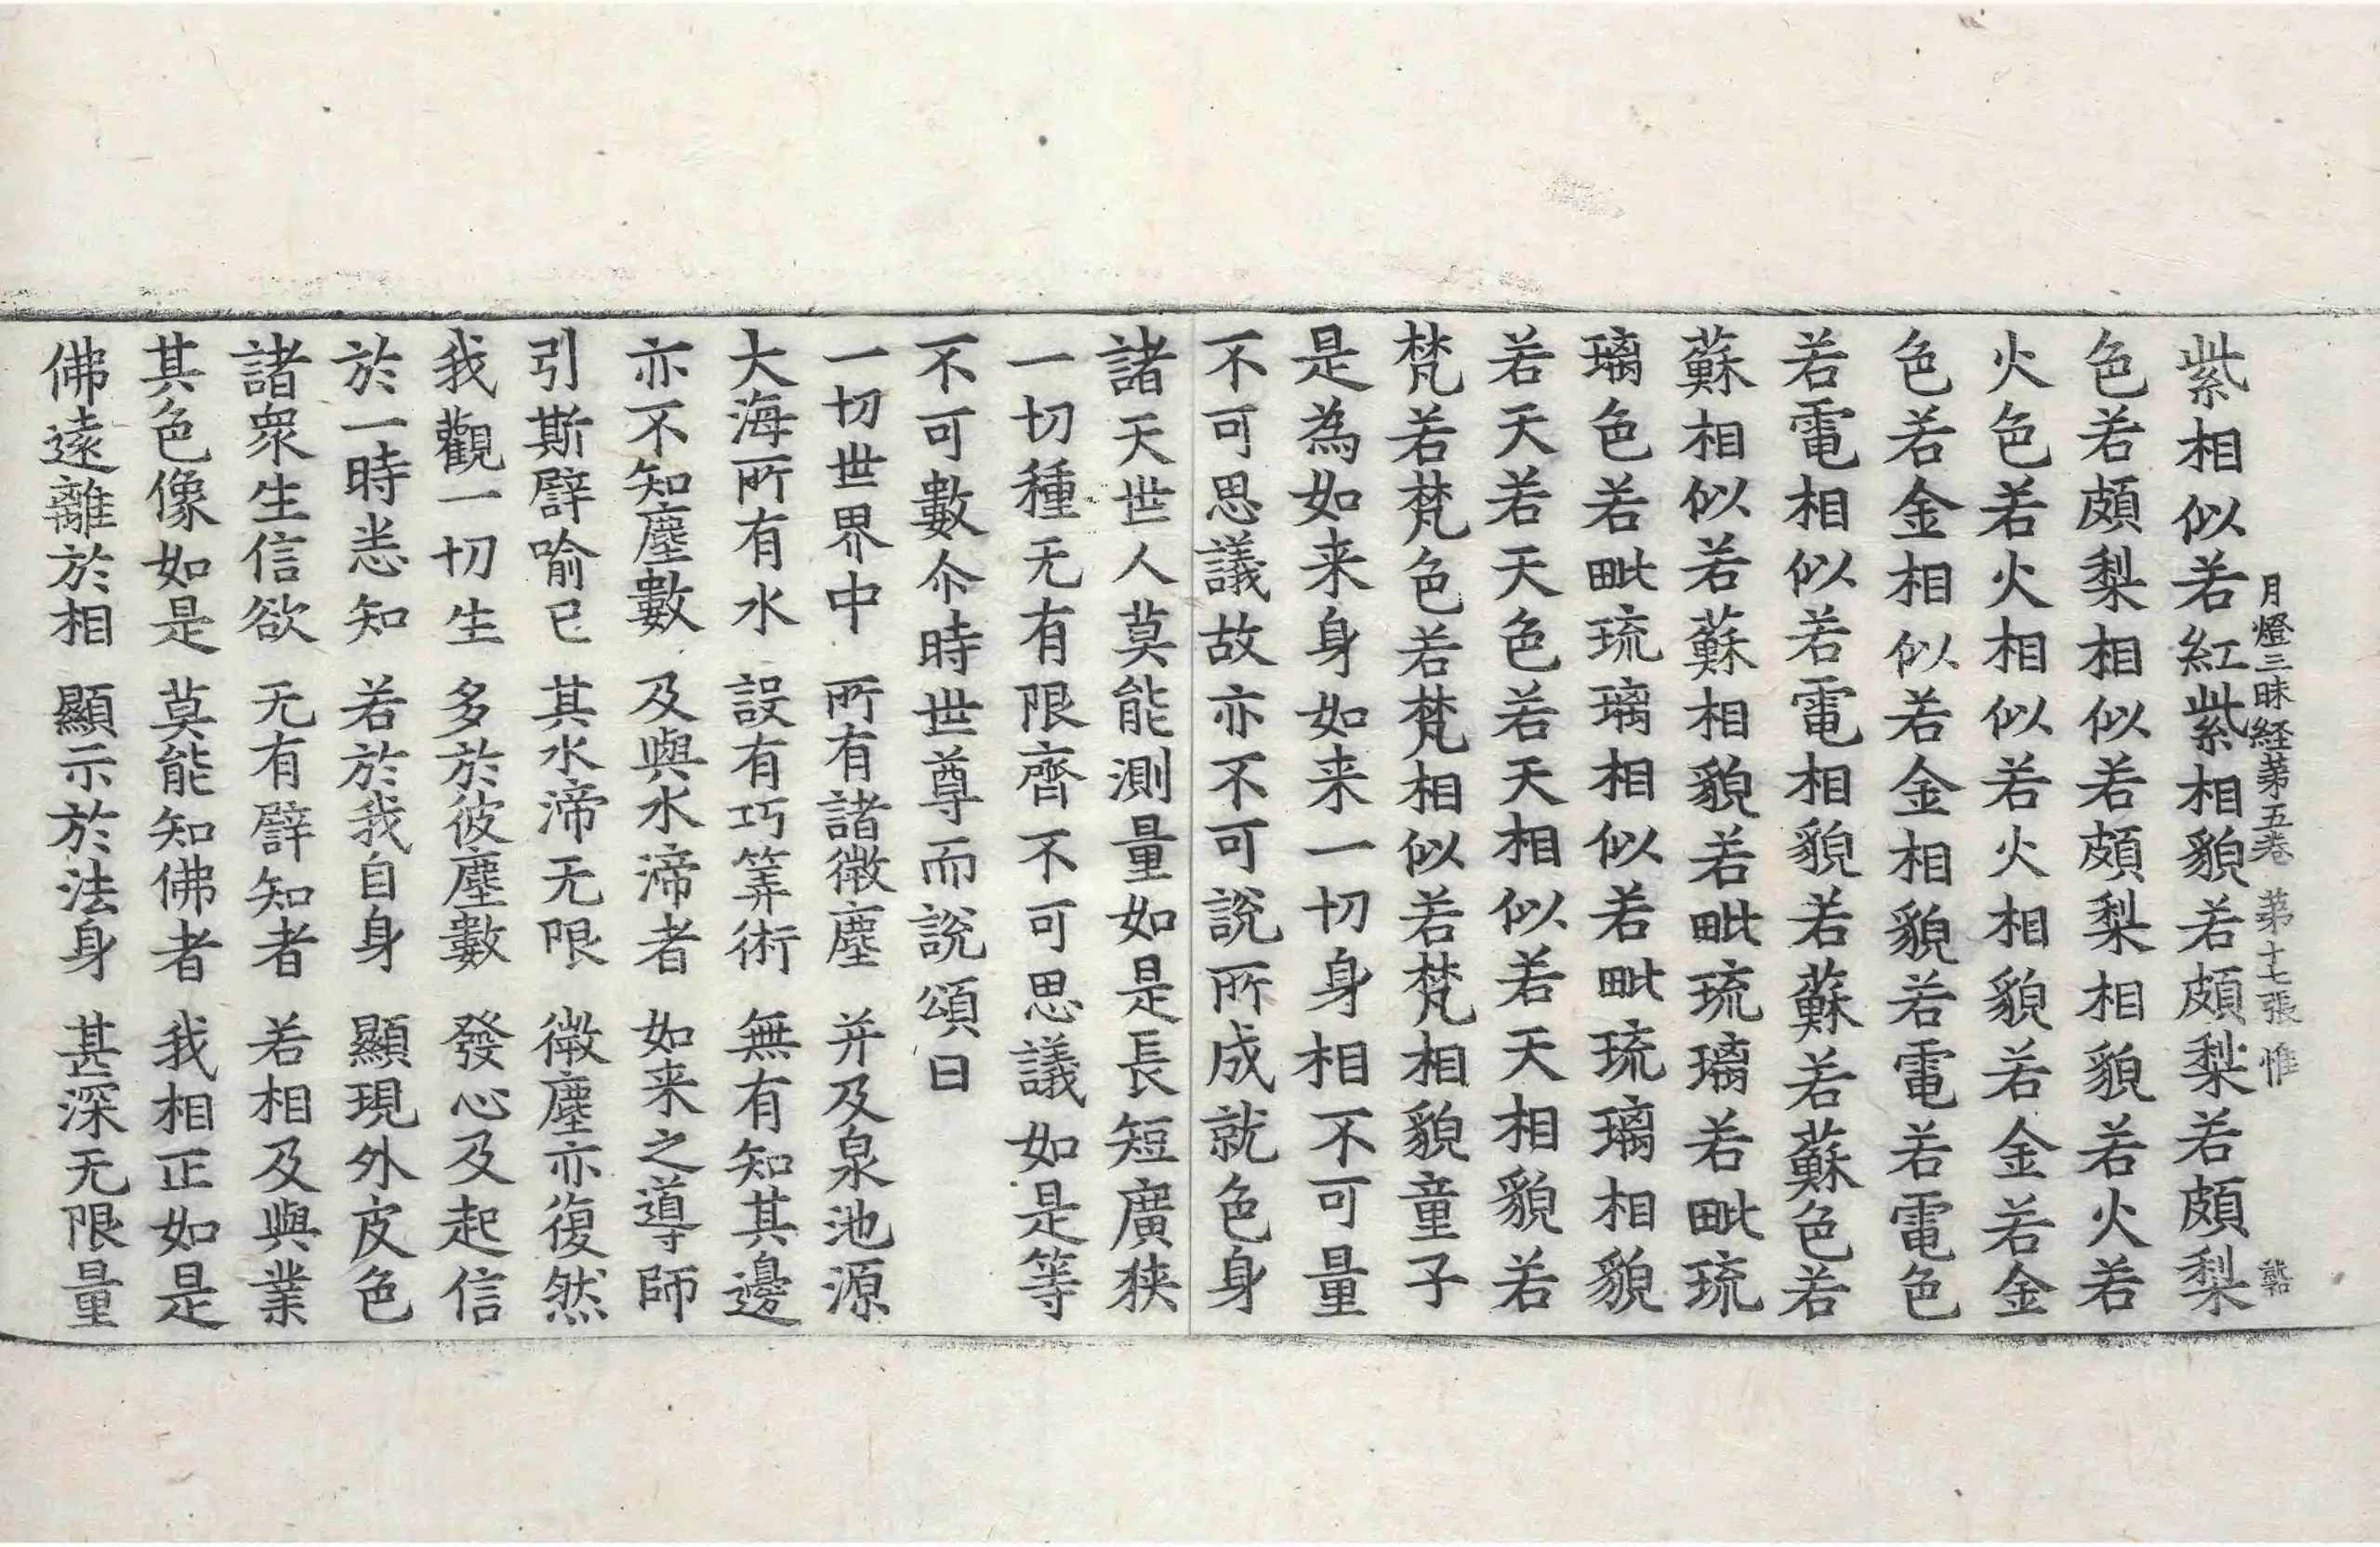 月燈三昧経第五卷 第十七張 惟
紫相似若紅紫相貌若頗梨若頗梨
色若頗梨相似若頗梨相貌若火若
火色若火相似若火相貌若金若金
色若金相似若金相貌若電若電色
若電相似若電相貌若蘇若蘇色若
蘇相似若蘇相貌若毗琉璃若毗琉
璃色若毗琉璃相似若毗琉璃相貌
若天若天色若天相似若天相貌若
梵若梵色若梵相似若梵相貌童子
是為如来身如来一切身相不可量
不可思議故亦不可說所成就色身
諸天世人莫能測量如是長短廣狹
一切種无有限齊不可思議如是等
不可數尒時世尊而說頌曰
一切世界中 所有諸微塵 并及泉池源
大海所有水 設有巧筭術 無有知其邊
亦不知塵數 及與水渧者 如来之導師
引斯譬喻已 其水渧无限 微塵亦復然
我觀一切生 多於彼塵數 發心及起信
於一時悉知 若於我自身 顯現外皮色
諸衆生信欲 无有譬知者 若相及與業
其色像如是 莫能知佛者 我相正如是
佛遠離於相 顯示於法身 甚深无限量